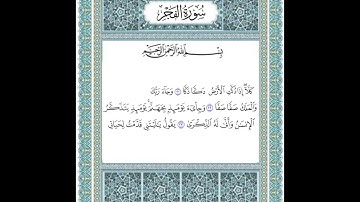 سُورَةُ الفَجْرِ
بِسْمِ اللَّهِ الرَّحْمَٰنِ الرَّحِيمِ
كَلَّا إِذَا دُكَّتِ الْأَرْضُ دَكًّا دَكًّا ٢١ وَجَاءَ رَبُّكَ
وَالْمَلَكُ صَفًّا صَفًّا ٢٢ وَجِاْىٓءَ يَوْمَئِذٍ بِجَهَنَّمَ يَوْمَئِذٍ يَتَذَكَّرُ
الْإِنسَٰنُ وَأَنَّىٰ لَهُ الذِّكْرَىٰ ٢٣ يَقُولُ يَٰلَيْتَنِى قَدَّمْتُ لِحَيَاتِى